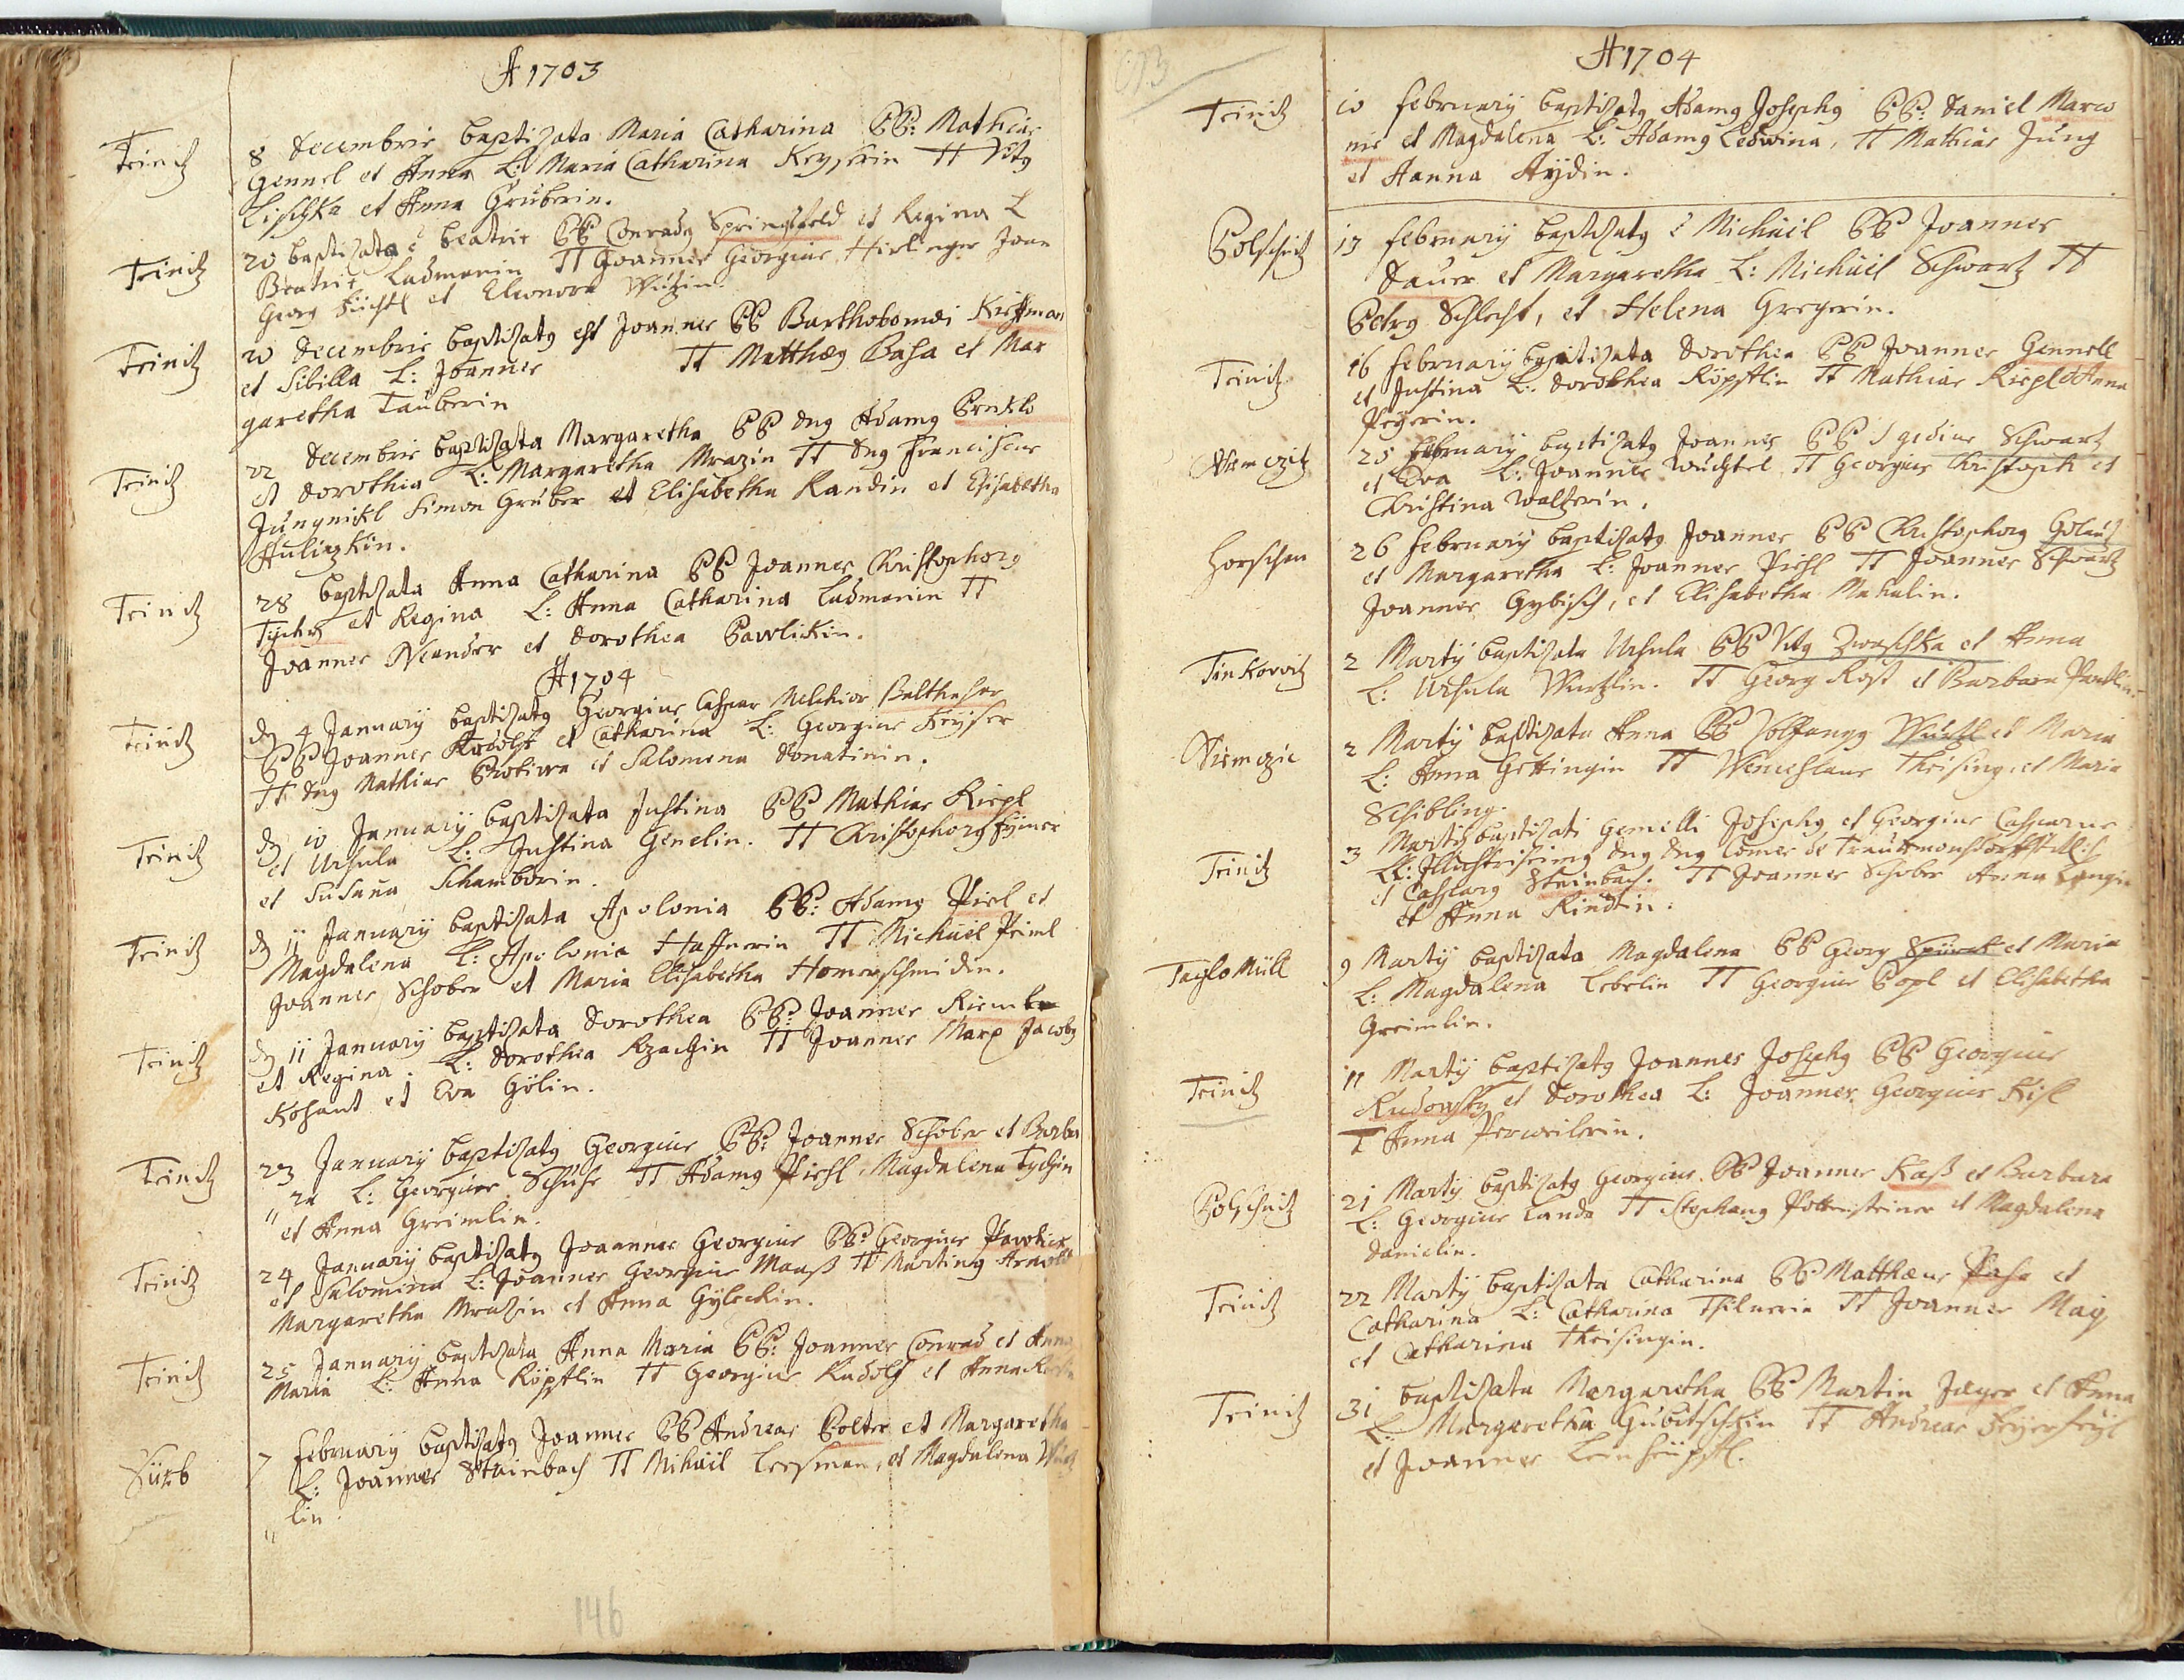 A 1703
Teinitz
8 Decembris baptizata Maria Catharina PP: Mathias
Gennel et Anna L: Maria Catharina Keyserin TT Vitg
Lischka et Anna Gruberin.
Teinitz
20 baptizata e Beatrix PP Conradg Springsfeld et Regina L
Beatrix Ladmanin TT Joannes Georgius Hirlinger Joan
Georg et Eleonora
Teinitz
20 Decembris baptizatg est Joannes PP Bartholomæi Kirffman
et Sibilla L: Joannes TT Matthæg Basa et Mar
garetha Tauberin
Teinitz
22 Decembris baptizata Margaretha PP dng Adamg
et Dorothea L: Margaretha Mrazin TT dng Franciscus
Jungnickl Simon Gruber et Elisabetha Randin et Elisabetha
Teinitz
28 baptizata Anna Catharina PP Joannes Christophorg
et Regina L: Anna Catharina Ladmanin TT
Joannes Neander et Dorothea Pawlickin.
A 1704
Teinitz
4 January baptizatg Georgius Caspar Melchior Balthasar
PP Joannes Rudolff et Catharina L: Georgius Keyser
TT dng Mathias Protiwa et Salomena Donatinin.
Teinitz
10 January baptizata Justina PP Mathias Riepl
et Ursula L: Justina Genelin. TT Christophorg
et Susana Schamborin.
Teinitz
11 January baptizata Apolonia PP: Adamg Piel et
Magdalena L: Apolonia Haffnerin TT Michael Peiml
Joannes Schober et Maria Elisabetha Homerschmidin.
Teinitz
11 January baptizata Dorothea PP: Joannes
et Regina. L: Dorothea TT Joannes Marx Jacobg
Kohaut et Eva Gölin.
Teinitz
23 January baptizatg Georgius PP: Joannes Schober et Barba
ra L: Georgius TT Adamg Piehl, Magdalena Tychin
et Anna Greimlin.
Teinitz
24 January baptizatg Joannes Georgius PP: Georgius Pawlick
et Salomina L: Joannes Georgius Maaß TT Marting Arnoldt
Margaretha Mrazin et Anna
Teinitz
25 January baptizata Anna Maria PP: Joannes Conrad et Anna
Maria L: Anna Köpstlin TT Georgius Rudolf et Anna
7 February baptizatg Joannes PP Andreas Polter et Margaretha
L: Joannes Steinbach TT Mihael Leesman, et Magdalena
lin
146
A 1704
Teinitz
10 February baptizatg Adamg Josephg PP: Daniel Marco
nis et Magdalena L: Adamg Ledwina, TT Mathias Jung
et Hanna Hydin.
Polschitz
17 February baptizatg e Michael PP Joannes
Sauer et Margaretha L: Michael Schwartz TT
Petrg Schlecht, et Helena Gregerin.
Teinitz
16 February baptizata Dorothea PP Joannes Gennell
et Justina L: Dorothea Köpstlin TT Mathias Riepl et Anna
Niemczitz
25 February baptizatg Joannes PP Egidius Schwartz
et Eva L: Joannes Wuchtrl TT Georgius Christoph et
Christina Waltzerin.
Horschau
26 February baptizatg Joannes PP Christophorg
et Margaretha L: Joannes Piehl TT Joannes Schwartz
Joannes et Elisabetha
Tinkovitz
2 Marty baptizata Ursula PP Vitg Zwoschka et Anna
L: Ursula Wurtzlin. TT Georg Rost et Barbara
Niemczic
2 Marty baptizata Anna PP Wolfgangg Wuchtl et Maria
L: Anna Gettingin TT Wenceslaus Theising, et Maria
Schibling.
Teinitz
3 Marty baptizati gemelli Josephg et Georgius Casparus
LL: Illustrissimg dng dng Comes de Trautmonsdorff
et Casparg Steinbach. TT Joannes Schober Anna Langin
et Anna Rindlin.
9 Marty baptizata Magdalena PP Georg et Maria
L: Magdalena Lebelin TT Georgius Popl et Elisabetha
Greimlin.
Teinitz
11 Marty baptizatg Joannes Josephg PP Georgius
Rudowsky et Dorothea L: Joannes Georgius
T Anna
Polschitz
21 Marty baptizatg Georgius. PP Joannes Kaß et Barbara
L: Georgius Landa TT Stephang Pottensteiner et Magdalena
Danielin.
Teinitz
22 Marty baptizata Catharina PP Matthæus Pasa et
Catharina L: Catharina TT Joannes May
et Catharina Theisingin.
Teinitz
31 baptizata Margaretha PP Martin Jæger et Anna
L: Margaretha TT Andreas
et Joannes